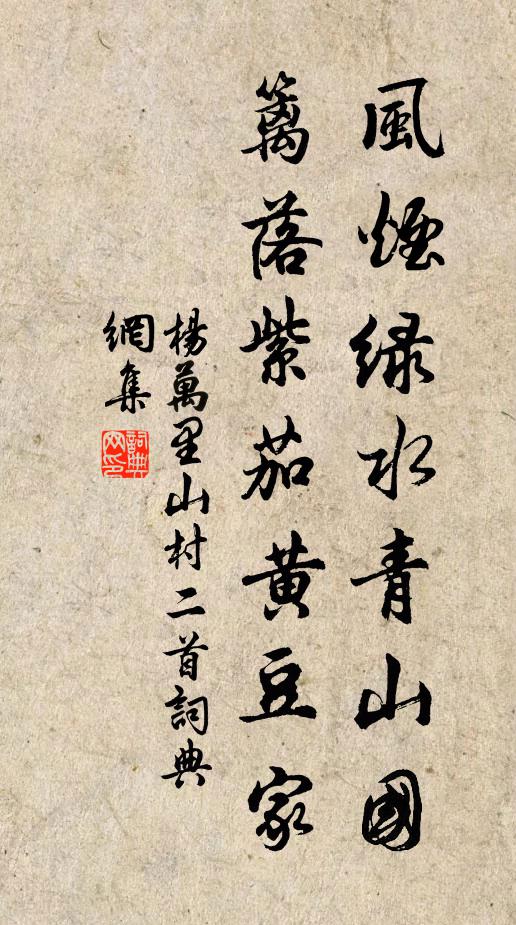 風煙綠水青山國
籬落紫茄黃豆家
楊萬里山村二首詞典
網集
詞典网印